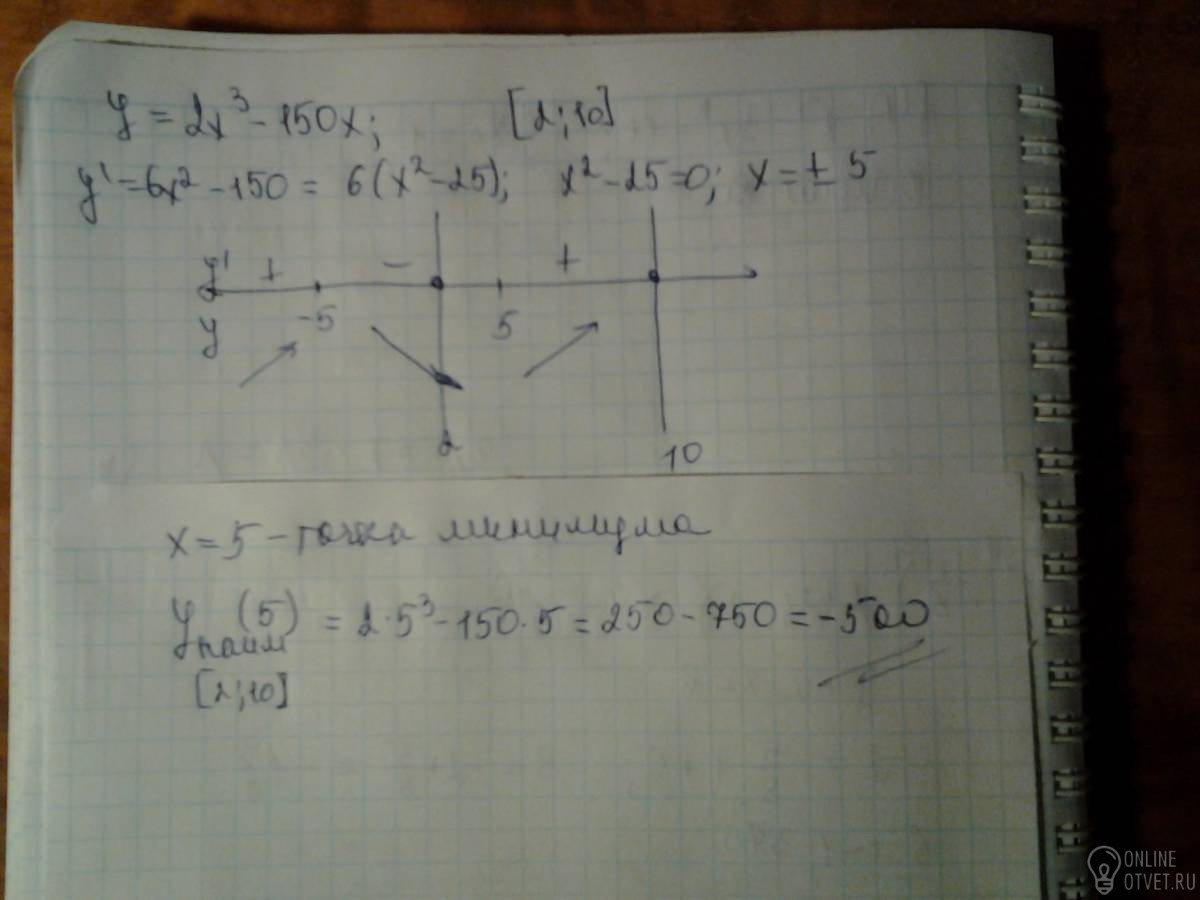 y = 2x³ - 150x; [2;10]
y' = 6x² - 150 = 6(x² - 25); x² - 25 = 0; x = ± 5
y' + - +
-5 5
y
2 10
x = 5 - точка минимума
y наим (5) = 2·5³ - 150·5 = 250 - 750 = -500
[2;10]
ONLINE
OTVET.RU